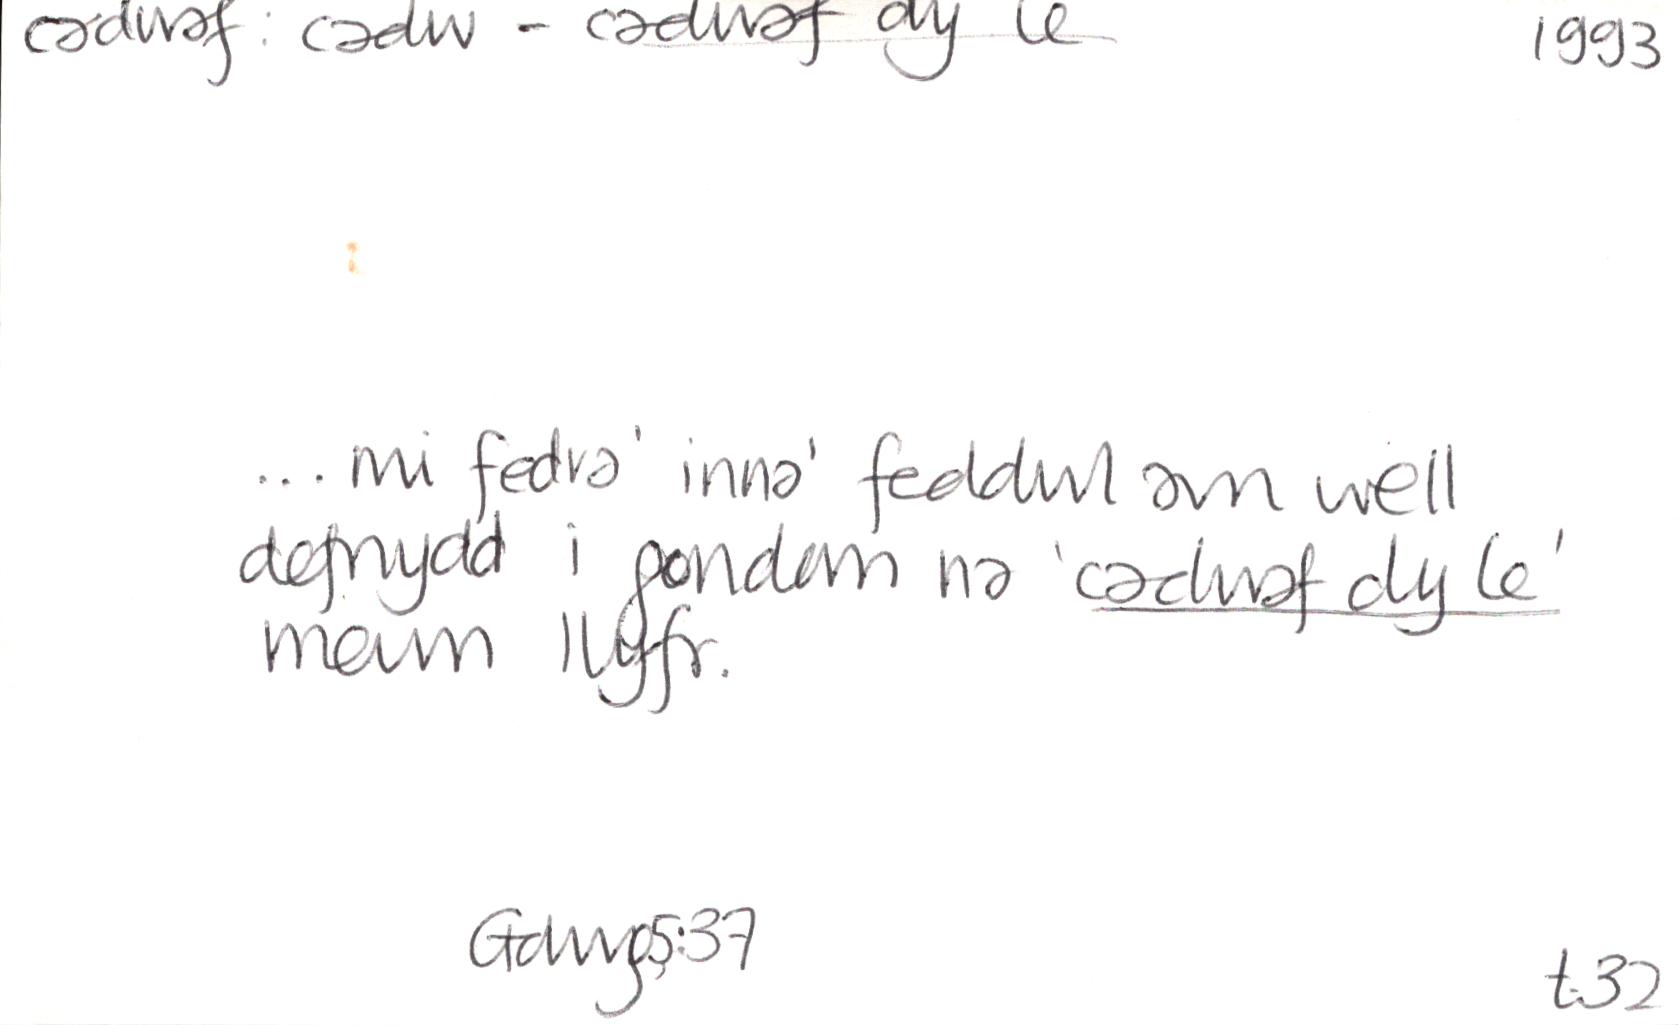 cadwaf: cadw - cadwaf dy le 1993
... mi fedra' inna' feddwl am well
defnydd i gondom na 'cadwaf dy le'
mewn llyfr.
Golwg5:37
t.32